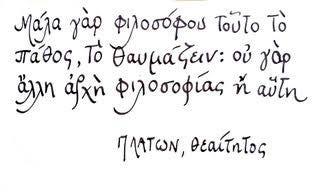 Μάλα γὰρ φιλοσόφου τοῦτο τὸ
πάθος, τὸ θαυμάζειν: οὐ γὰρ
ἄλλη ἀρχὴ φιλοσοφίας ἢ αὕτη
ΠΛΑΤΩΝ, θεαίτητος